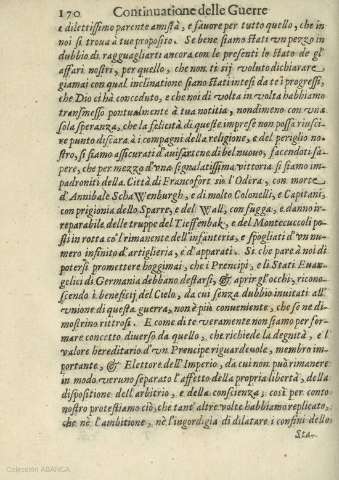 170 Continuatione delle Guerre
e dilettissimo parente amistà, e fauore per tutto quello, che in
noi si troua à tuo proposito. Se bene siamo stati vn pezzo in
dubbio di ragguagliarti ancora con le presenti lo stato de gl'
affari nostri, per quello, che non ti sij voluto dichiarare
giamai con qual inclinatione siano stati intesi da te i progressi,
che Dio ci hà conceduto, e che noi di volta in volta habbiamo
trasmesso pontualmente à tua notitia, nondimeno con vna
sola speranza, che la felicità di queste imprese non possa riusci-
re punto discara à i compagni della religione, e del periglio no-
stro, si siamo assicurati d'auisartene di bel nuouo, facendoti sa-
pere, che per mezzo d'vna segnalatissima vittoria si siamo im-
padroniti della Città di Francofort sù l'Odera, con morte
d'Annibale Schawenburgh, e di molto Colonelli, e Capitani,
con prigionia dello Sparre, e del Wall, con fuga, e danno ir-
reparabile delle truppe del Tieffenbak, e del Montecuccoli po-
sti in rotta co'l rimanente dell'infanteria, e spogliati d'vn nu-
mero infinito d'artiglieria, e d'apparati. Si che pare à noi di
potersi promettere hoggimai, che i Prencipi, e li Stati Euan-
gelici di Germania debbano destarsi, & aprir gl'occhi, ricono-
scendo i beneficij del Cielo, da cui senza dubbio inuitati all'
vnione di questa guerra, non è più conueniente, che se ne di-
mostrino ritrosi. E come di te veramente non siamo per for-
mare concetto diuerso da quello, che richiede la degnità, e l
valore hereditario d'vn Prencipe riguardeuole, membro im-
portante, & Elettore dell'Imperio, da cui non può rimanere
in modo veruno separato l'affetto della propria libertà, della
dispositione dell'arbitrio, e della conscienza; così per conto
nostro protestiamo ciò, che tant'altre volte habbiamo replicato,
che nè l'ambitione, nè l'ingordigia di dilatare i confini dello
Sta-
Colección ABANCA